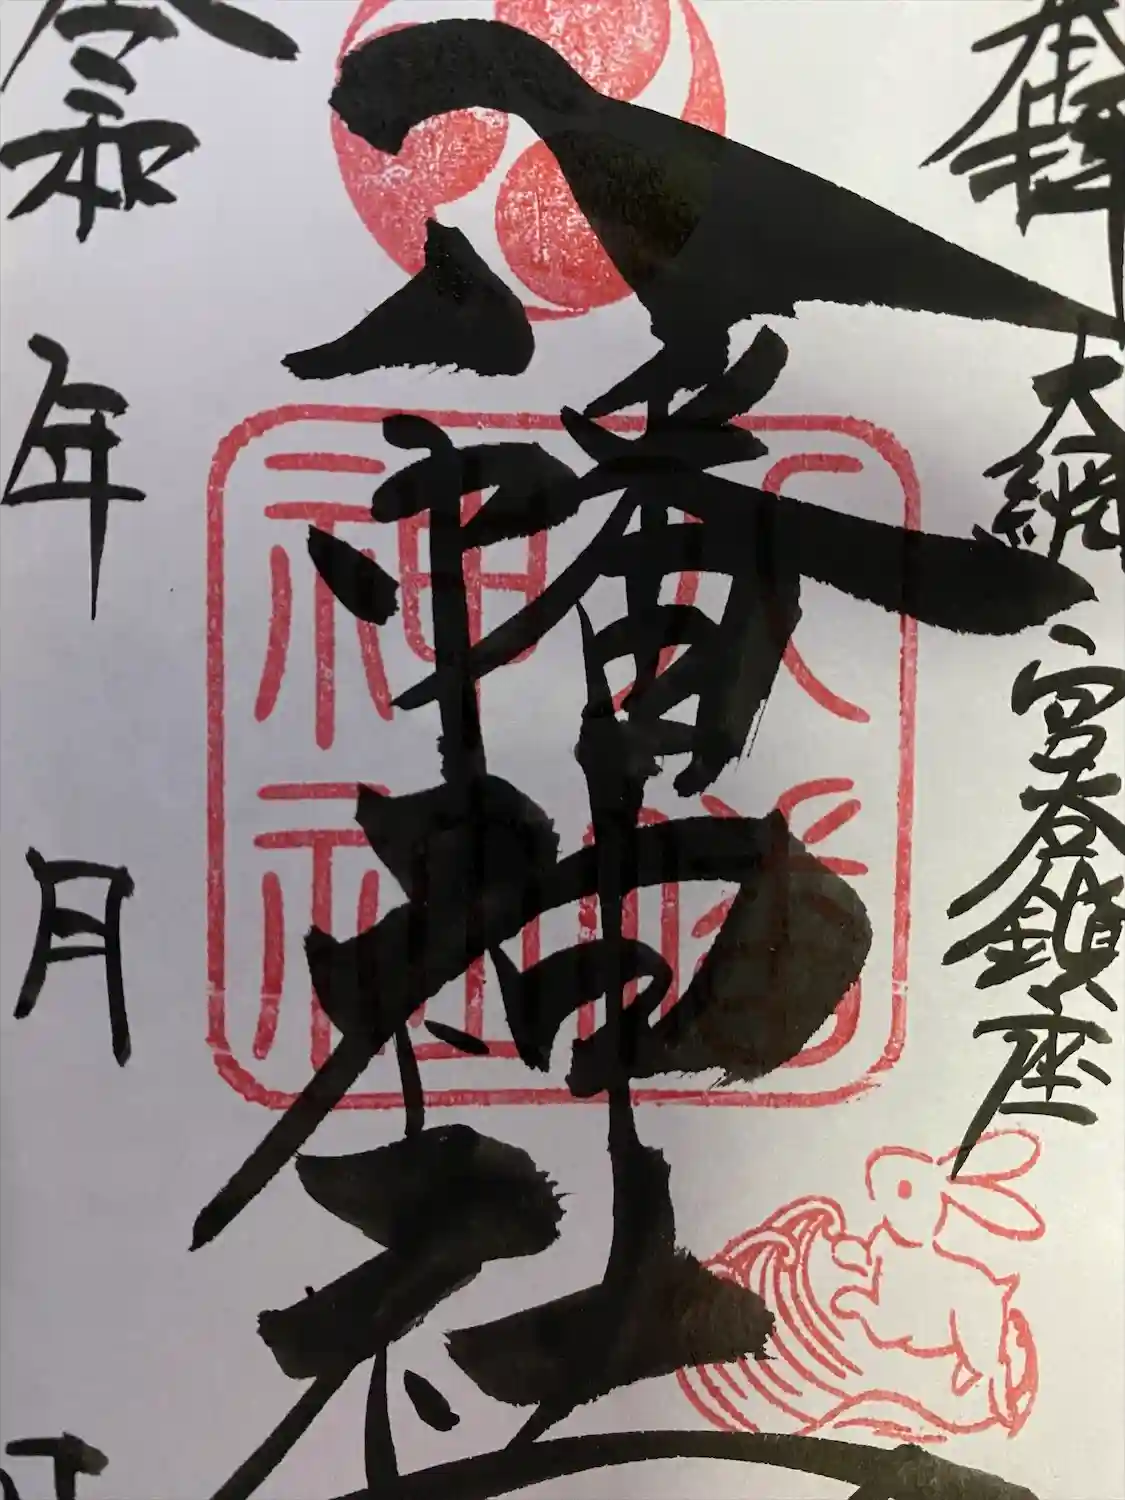 奉拝
大網
宮谷鎮座
八幡神社
八幡
神社
令和
年
月